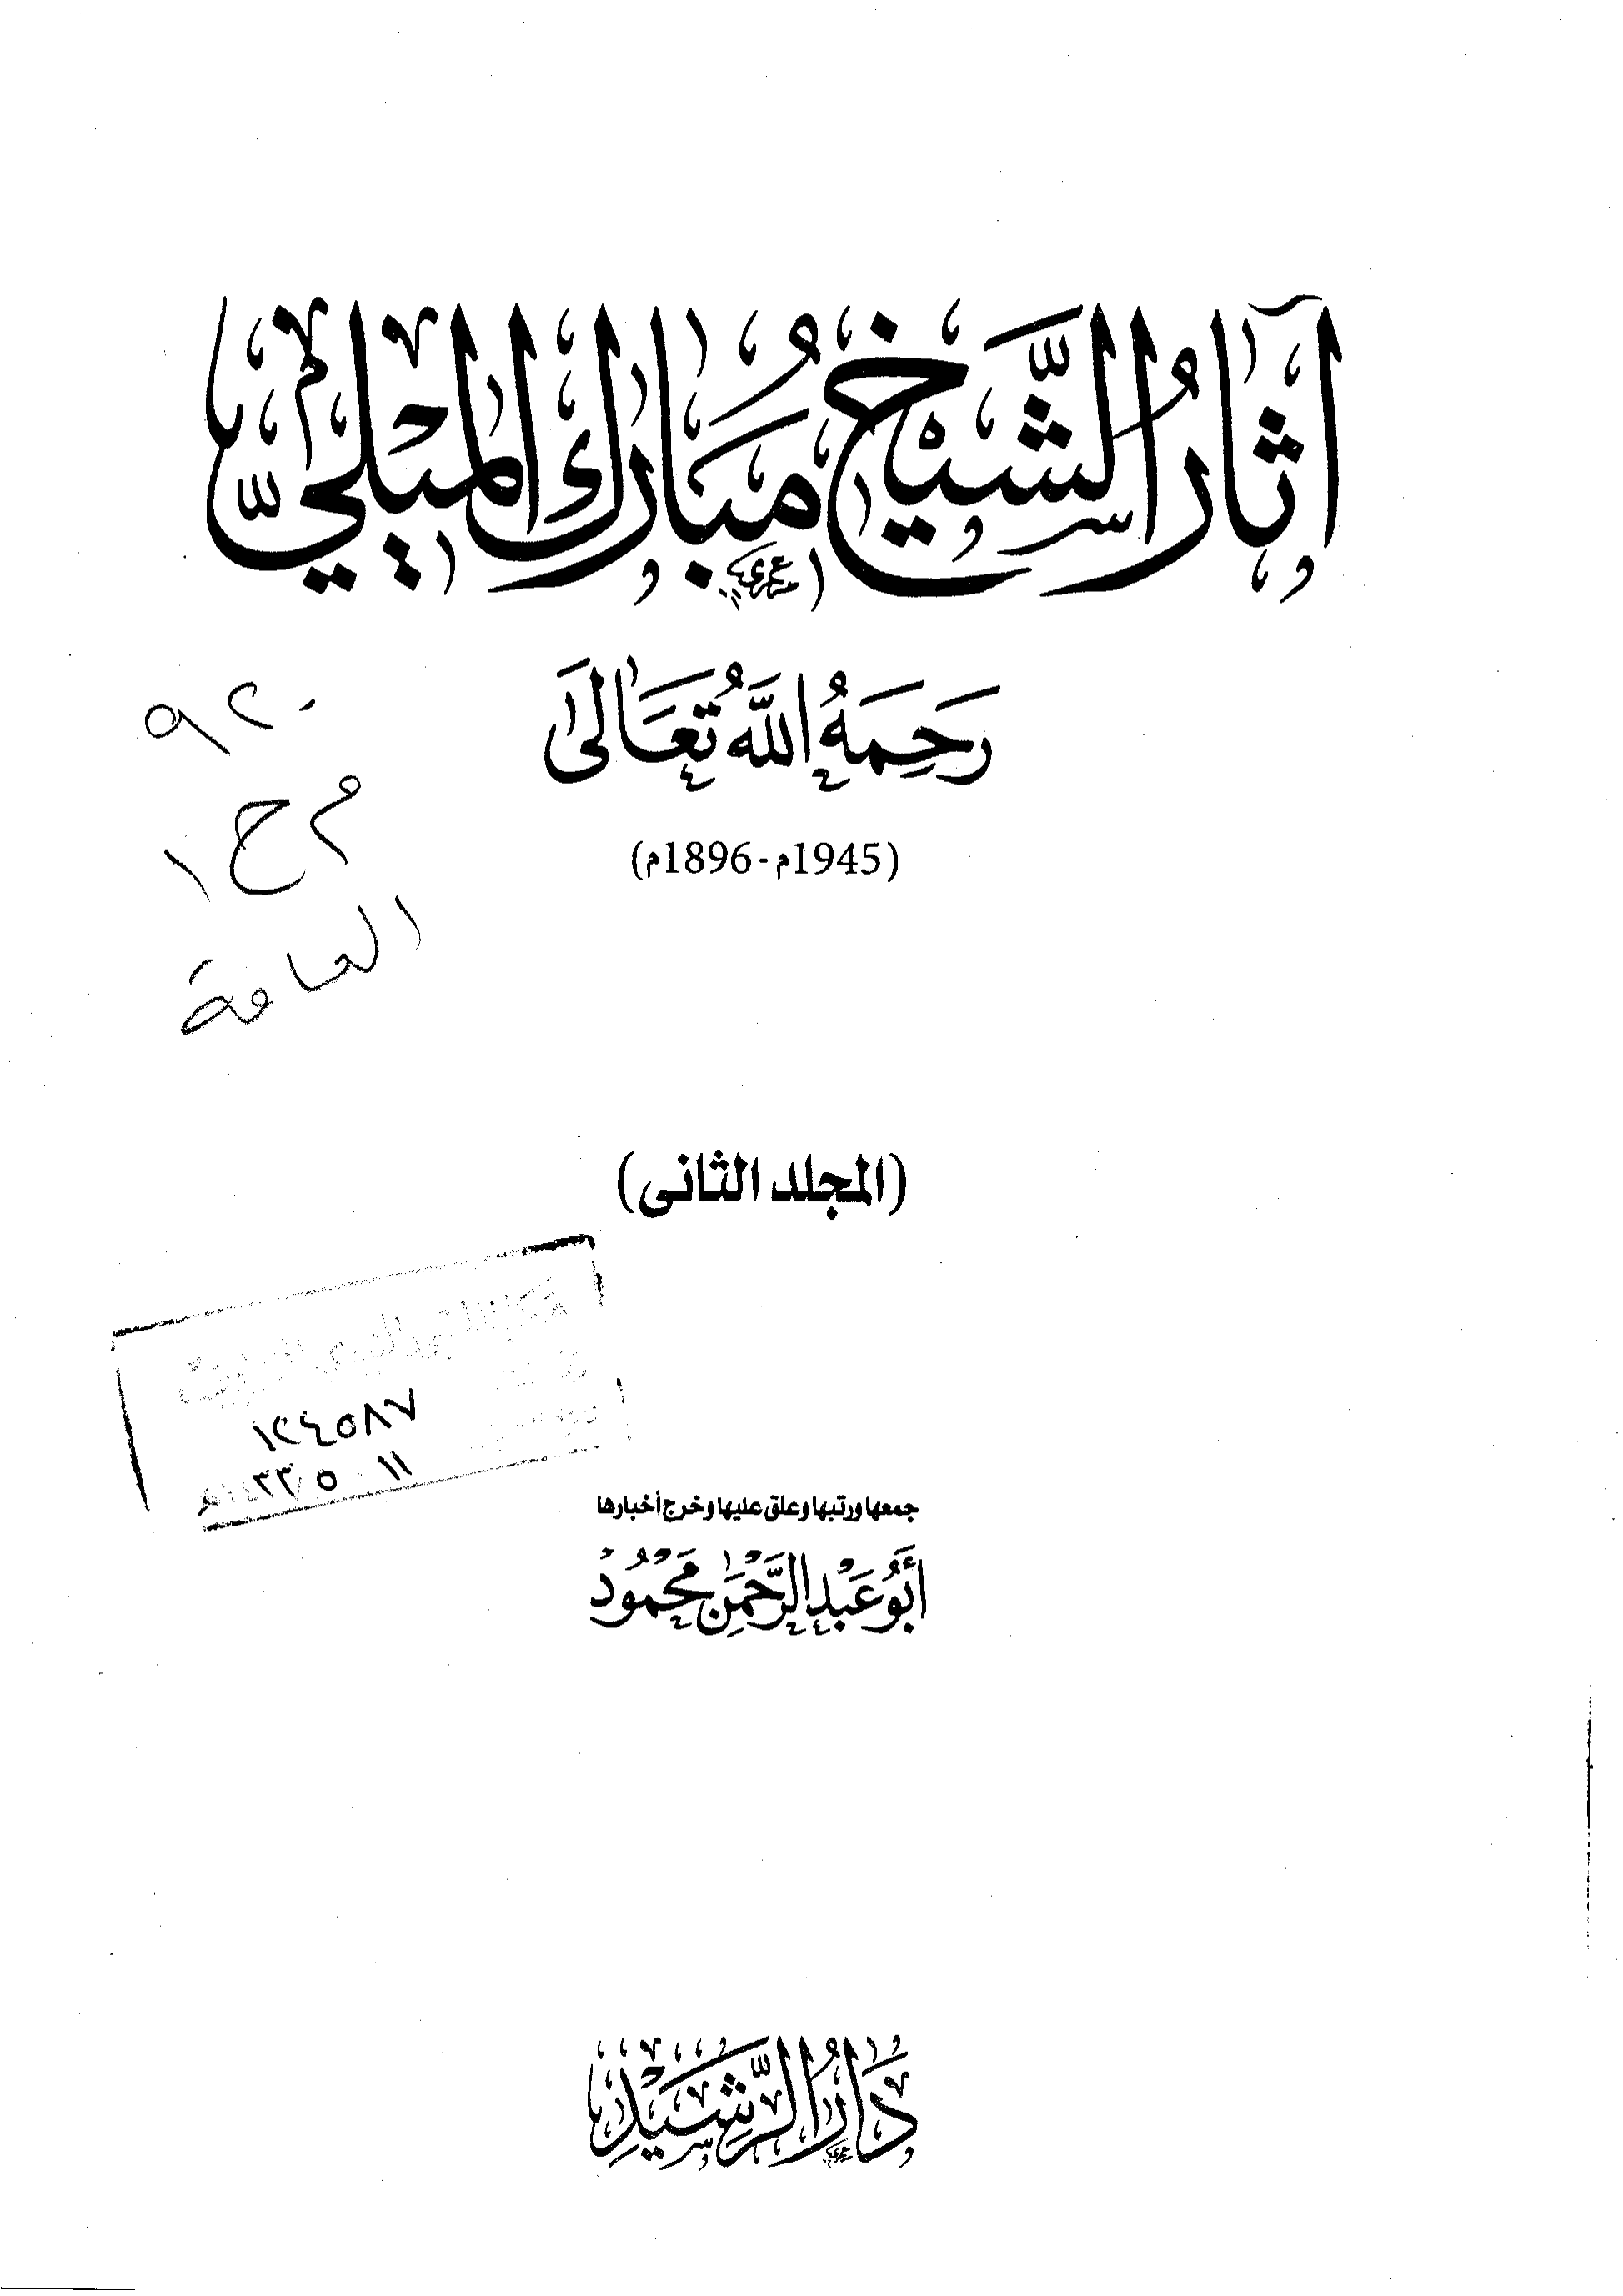 آثار الشيخ مبارك الميلي
رحمه الله تعالى
(1896م-1945م)
٩٢٠
م ح ١
العامة
(المجلد الثاني)
١٢٤٥٨٧
١١
جمعها ورتبها وعلق عليها وخرج أخبارها
أبو عبد الرحمن محمود
دار الرشيد